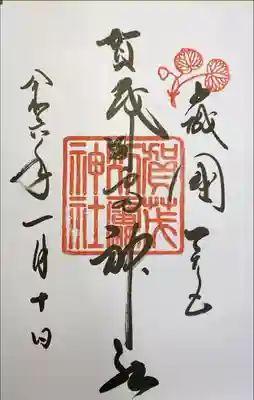 山城国一之宮
賀茂別雷神社
賀茂別雷神社
令和六年一月十日